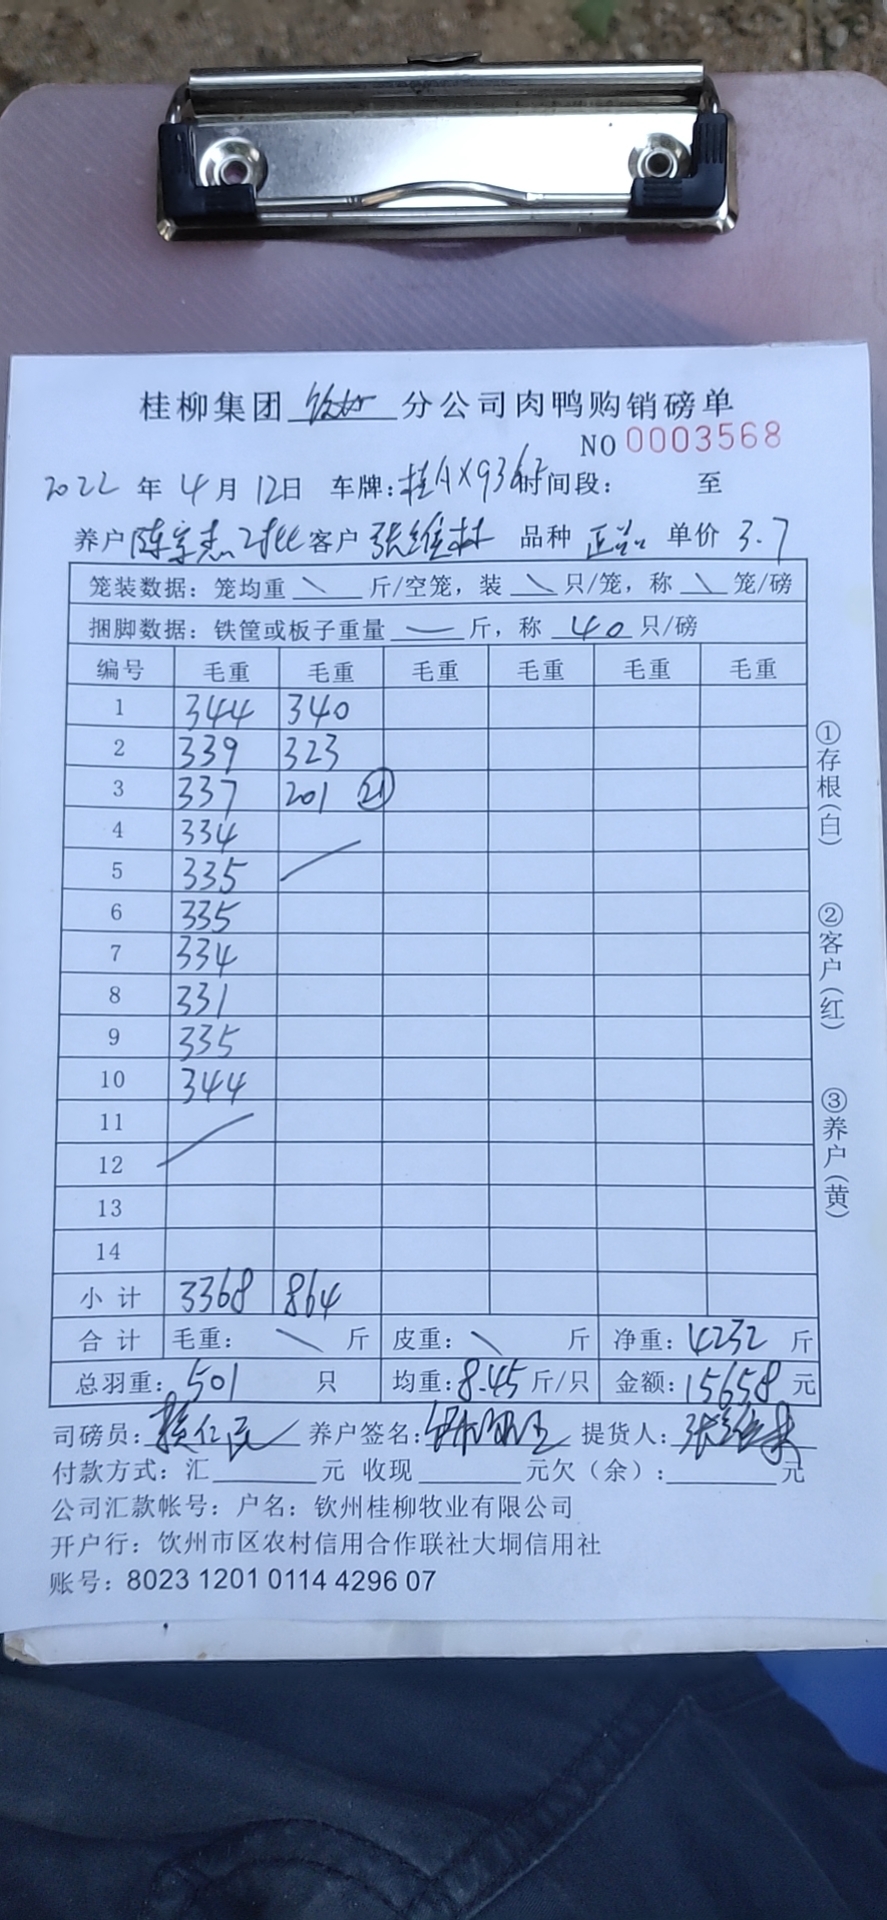 桂柳集团 钦州 分公司肉鸭购销磅单
NO 0003568
2022 年 4 月 12日 车牌:桂AX936 时间段: 至
养户 陈宗杰 2批 客户 张维林 品种 正品 单价 3.7
笼装数据: 笼均重 \ 斤/空笼, 装 \ 只/笼, 称 \ 笼/磅
捆脚数据: 铁筐或板子重量 — 斤, 称 40 只/磅
编号 毛重 毛重 毛重 毛重 毛重 毛重
1 344 340
2 339 323
3 337 201 ㉑
4 334
5 335
6 335
7 334
8 331
9 335
10 344
11
12
13
14
小计 3368 864
合计 毛重: \ 斤 皮重: \ 斤 净重: 4232 斤
总羽重: 501 只 均重: 8.45 斤/只 金额: 15658 元
司磅员: 养户签名: 提货人: 张维林
付款方式: 汇 元 收现 元欠(余): 元
公司汇款帐号: 户名: 钦州桂柳牧业有限公司
开户行: 饮州市区农村信用合作联社大垌信用社
账号: 8023 1201 0114 4296 07
①存根(白)
②客户(红)
③养户(黄)